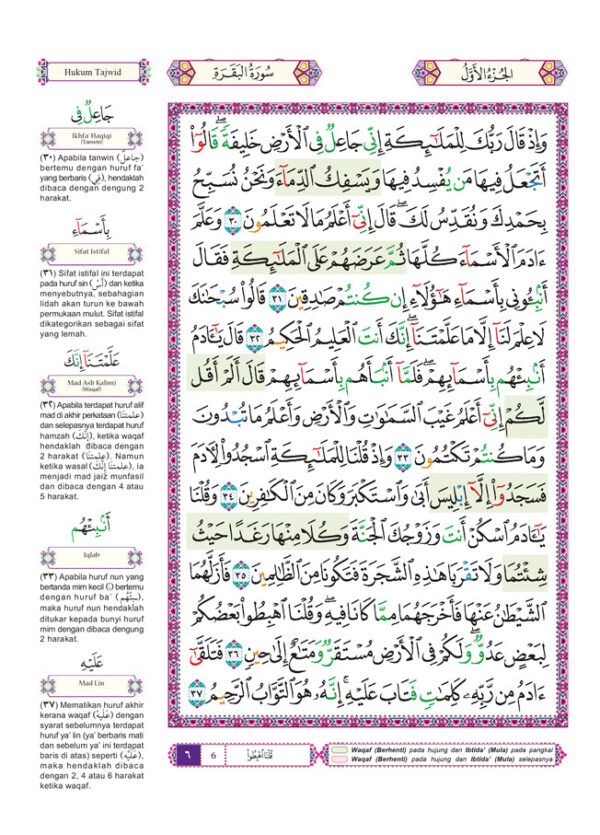 Hukum Tajwid
سُورَةُ الْبَقَرَةِ
الجُزْءُ الْأَوَّلُ
جَاعِلٌ فِي
Ikhfa Haqiqi
(Tanwin)
(٣٠) Apabila tanwin (جاعلٌ)
bertemu dengan huruf fa'
yang berbaris (فِي), hendaklah
dibaca dengan dengung 2
harakat.
بِأَسْمَاءِ
Sifat Istifal
(٣١) Sifat istifal ini terdapat
pada huruf sin (أَسْ) dan ketika
menyebutnya, sebahagian
lidah akan turun ke bawah
permukaan mulut. Sifat istifal
dikategorikan sebagai sifat
yang lemah.
عَلَّمْتَنَا إِنَّكَ
Mad Asli Kalimi
(Waqaf)
(٣٢) Apabila terdapat huruf alif
mad di akhir perkataan (علمتنا)
dan selepasnya terdapat huruf
hamzah (إِنَّكَ), ketika waqaf
hendaklah dibaca dengan
2 harakat (علمتنا). Namun
ketika wasal (علمتنا إِنَّكَ), ia
menjadi mad jaiz munfasil
dan dibaca dengan 4 atau
5 harakat.
أَنۢبِئْهُم
Iqlab
(٣٣) Apabila huruf nun yang
bertanda mim kecil (ۢ) bertemu
dengan huruf ba' (بِئْهُم),
maka huruf nun hendaklah
ditukar kepada bunyi huruf
mim dengan dibaca dengung
2 harakat.
عَلَيْهِ
Mad Lin
(٣٧) Mematikan huruf akhir
kerana waqaf (عَلَيْهْ) dengan
syarat sebelumnya terdapat
huruf ya' lin (ya' berbaris mati
dan sebelum ya' ini terdapat
baris di atas) seperti (عَلَيْهِ),
maka hendaklah dibaca
dengan 2, 4 atau 6 harakat
ketika waqaf.
وَإِذْ قَالَ رَبُّكَ لِلْمَلَٰٓئِكَةِ إِنِّى جَاعِلٌ فِى ٱلْأَرْضِ خَلِيفَةً ۖ قَالُوٓا۟
أَتَجْعَلُ فِيهَا مَن يُفْسِدُ فِيهَا وَيَسْفِكُ ٱلدِّمَآءَ وَنَحْنُ نُسَبِّحُ
بِحَمْدِكَ وَنُقَدِّسُ لَكَ ۖ قَالَ إِنِّىٓ أَعْلَمُ مَا لَا تَعْلَمُونَ ٣٠ وَعَلَّمَ
ءَادَمَ ٱلْأَسْمَآءَ كُلَّهَا ثُمَّ عَرَضَهُمْ عَلَى ٱلْمَلَٰٓئِكَةِ فَقَالَ
أَنۢبِـُٔونِى بِأَسْمَآءِ هَٰٓؤُلَآءِ إِن كُنتُمْ صَٰدِقِينَ ٣١ قَالُوا۟ سُبْحَٰنَكَ
لَا عِلْمَ لَنَآ إِلَّا مَا عَلَّمْتَنَآ ۖ إِنَّكَ أَنتَ ٱلْعَلِيمُ ٱلْحَكِيمُ ٣٢ قَالَ يَٰٓـَٔادَمُ
أَنۢبِئْهُم بِأَسْمَآئِهِمْ ۖ فَلَمَّآ أَنۢبَأَهُم بِأَسْمَآئِهِمْ قَالَ أَلَمْ أَقُل
لَّكُمْ إِنِّىٓ أَعْلَمُ غَيْبَ ٱلسَّمَٰوَٰتِ وَٱلْأَرْضِ وَأَعْلَمُ مَا تُبْدُونَ
وَمَا كُنتُمْ تَكْتُمُونَ ٣٣ وَإِذْ قُلْنَا لِلْمَلَٰٓئِكَةِ ٱسْجُدُوا۟ لِـَٔادَمَ
فَسَجَدُوٓا۟ إِلَّآ إِبْلِيسَ أَبَىٰ وَٱسْتَكْبَرَ وَكَانَ مِنَ ٱلْكَٰفِرِينَ ٣٤ وَقُلْنَا
يَٰٓـَٔادَمُ ٱسْكُنْ أَنتَ وَزَوْجُكَ ٱلْجَنَّةَ وَكُلَا مِنْهَا رَغَدًا حَيْثُ
شِئْتُمَا وَلَا تَقْرَبَا هَٰذِهِ ٱلشَّجَرَةَ فَتَكُونَا مِنَ ٱلظَّٰلِمِينَ ٣٥ فَأَزَلَّهُمَا
ٱلشَّيْطَٰنُ عَنْهَا فَأَخْرَجَهُمَا مِمَّا كَانَا فِيهِ ۖ وَقُلْنَا ٱهْبِطُوا۟ بَعْضُكُمْ
لِبَعْضٍ عَدُوٌّ ۖ وَلَكُمْ فِى ٱلْأَرْضِ مُسْتَقَرٌّ وَمَتَٰعٌ إِلَىٰ حِينٍ ٣٦ فَتَلَقَّىٰٓ
ءَادَمُ مِن رَّبِّهِۦ كَلِمَٰتٍ فَتَابَ عَلَيْهِ ۚ إِنَّهُۥ هُوَ ٱلتَّوَّابُ ٱلرَّحِيمُ ٣٧
٦ 6 قُلْنَا اهْبِطُوا
Waqaf (Berhenti) pada hujung dan Ibtida' (Mula) pada pangkal
Waqaf (Berhenti) pada hujung dan Ibtida' (Mula) selepasnya